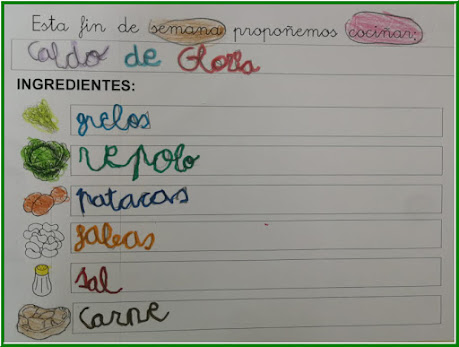 Esta fin de semana propoñemos cociñar:
Caldo de Gloria
INGREDIENTES:
grelos
repolo
patacas
fabas
sal
carne